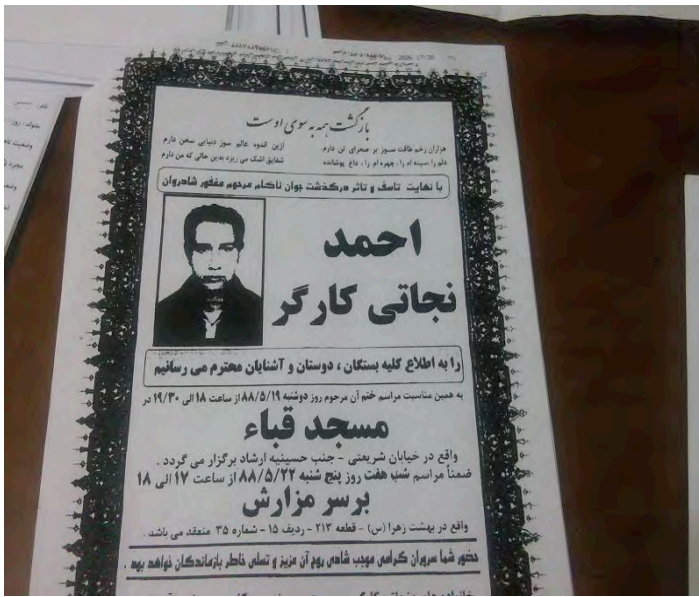 بازگشت همه به سوی اوست
هزاران زخم طاقت سوز بر صحرای تن دارم ازین اندوه عالم سوز دنیایی سخن دارم
دلم را، سینه ام را، چهره ام را، داغ پوشانده شقایق اشک می ریزد بدین حالی که من دارم
با نهایت تاسف و تاثر درگذشت جوان ناکام مرحوم مغفور شادروان
احمد
نجاتی کارگر
را به اطلاع کلیه بستگان ، دوستان و آشنایان محترم می رسانیم
به همین مناسبت مراسم ختم آن مرحوم روز دوشنبه ۸۸/۵/۱۹ از ساعت ۱۸ الی ۱۹/۳۰ در
مسجد قباء
واقع در خیابان شریعتی - جنب حسینیه ارشاد برگزار می گردد .
ضمناً مراسم شب هفت روز پنج شنبه ۸۸/۵/۲۲ از ساعت ۱۷ الی ۱۸
برسر مزارش
واقع در بهشت زهرا (س) - قطعه ۲۱۳ - ردیف ۱۵ - شماره ۳۵ منعقد می باشد .
حضور شما سروران گرامی موجب شادی روح آن عزیز و تسلی خاطر بازماندگان خواهد بود .